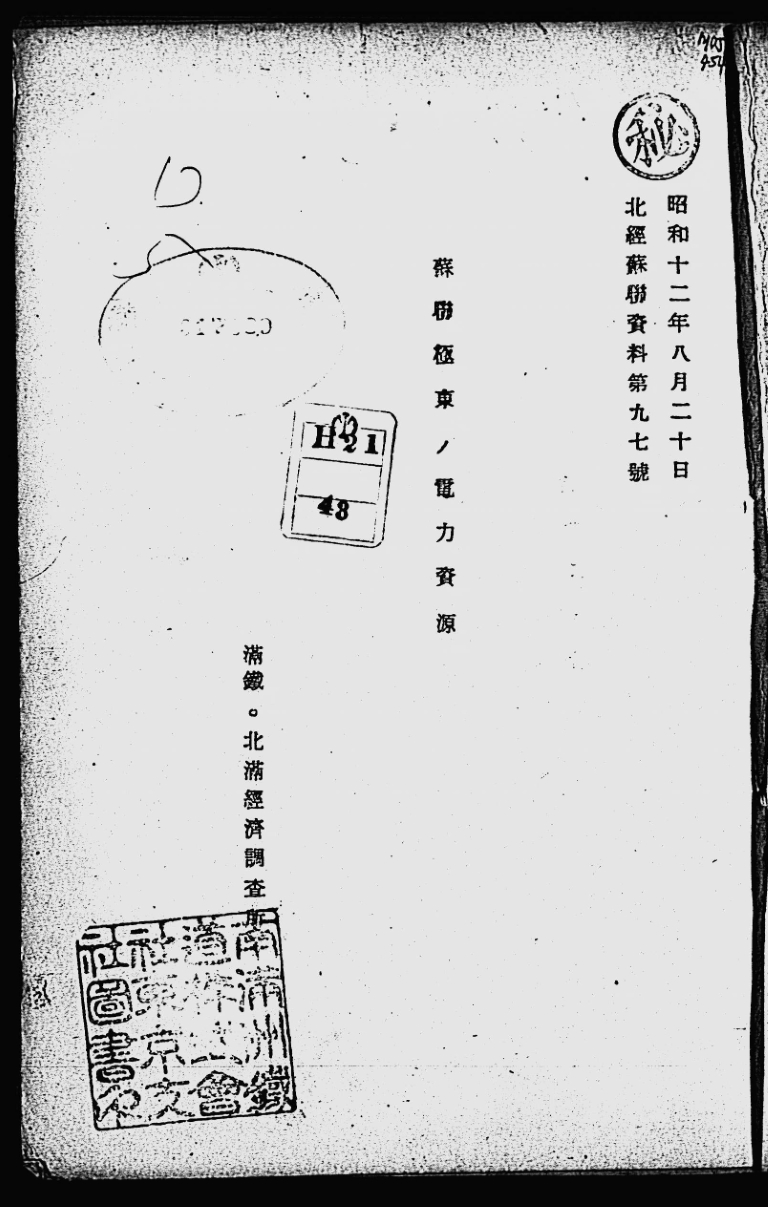 秘
昭和十二年八月二十日
北經蘇聯資料第九七號
蘇聯極東ノ電力資源
H21
48
滿鐵。北滿經濟調查所
南滿洲鐵
道株式會
社東京支
社圖書印